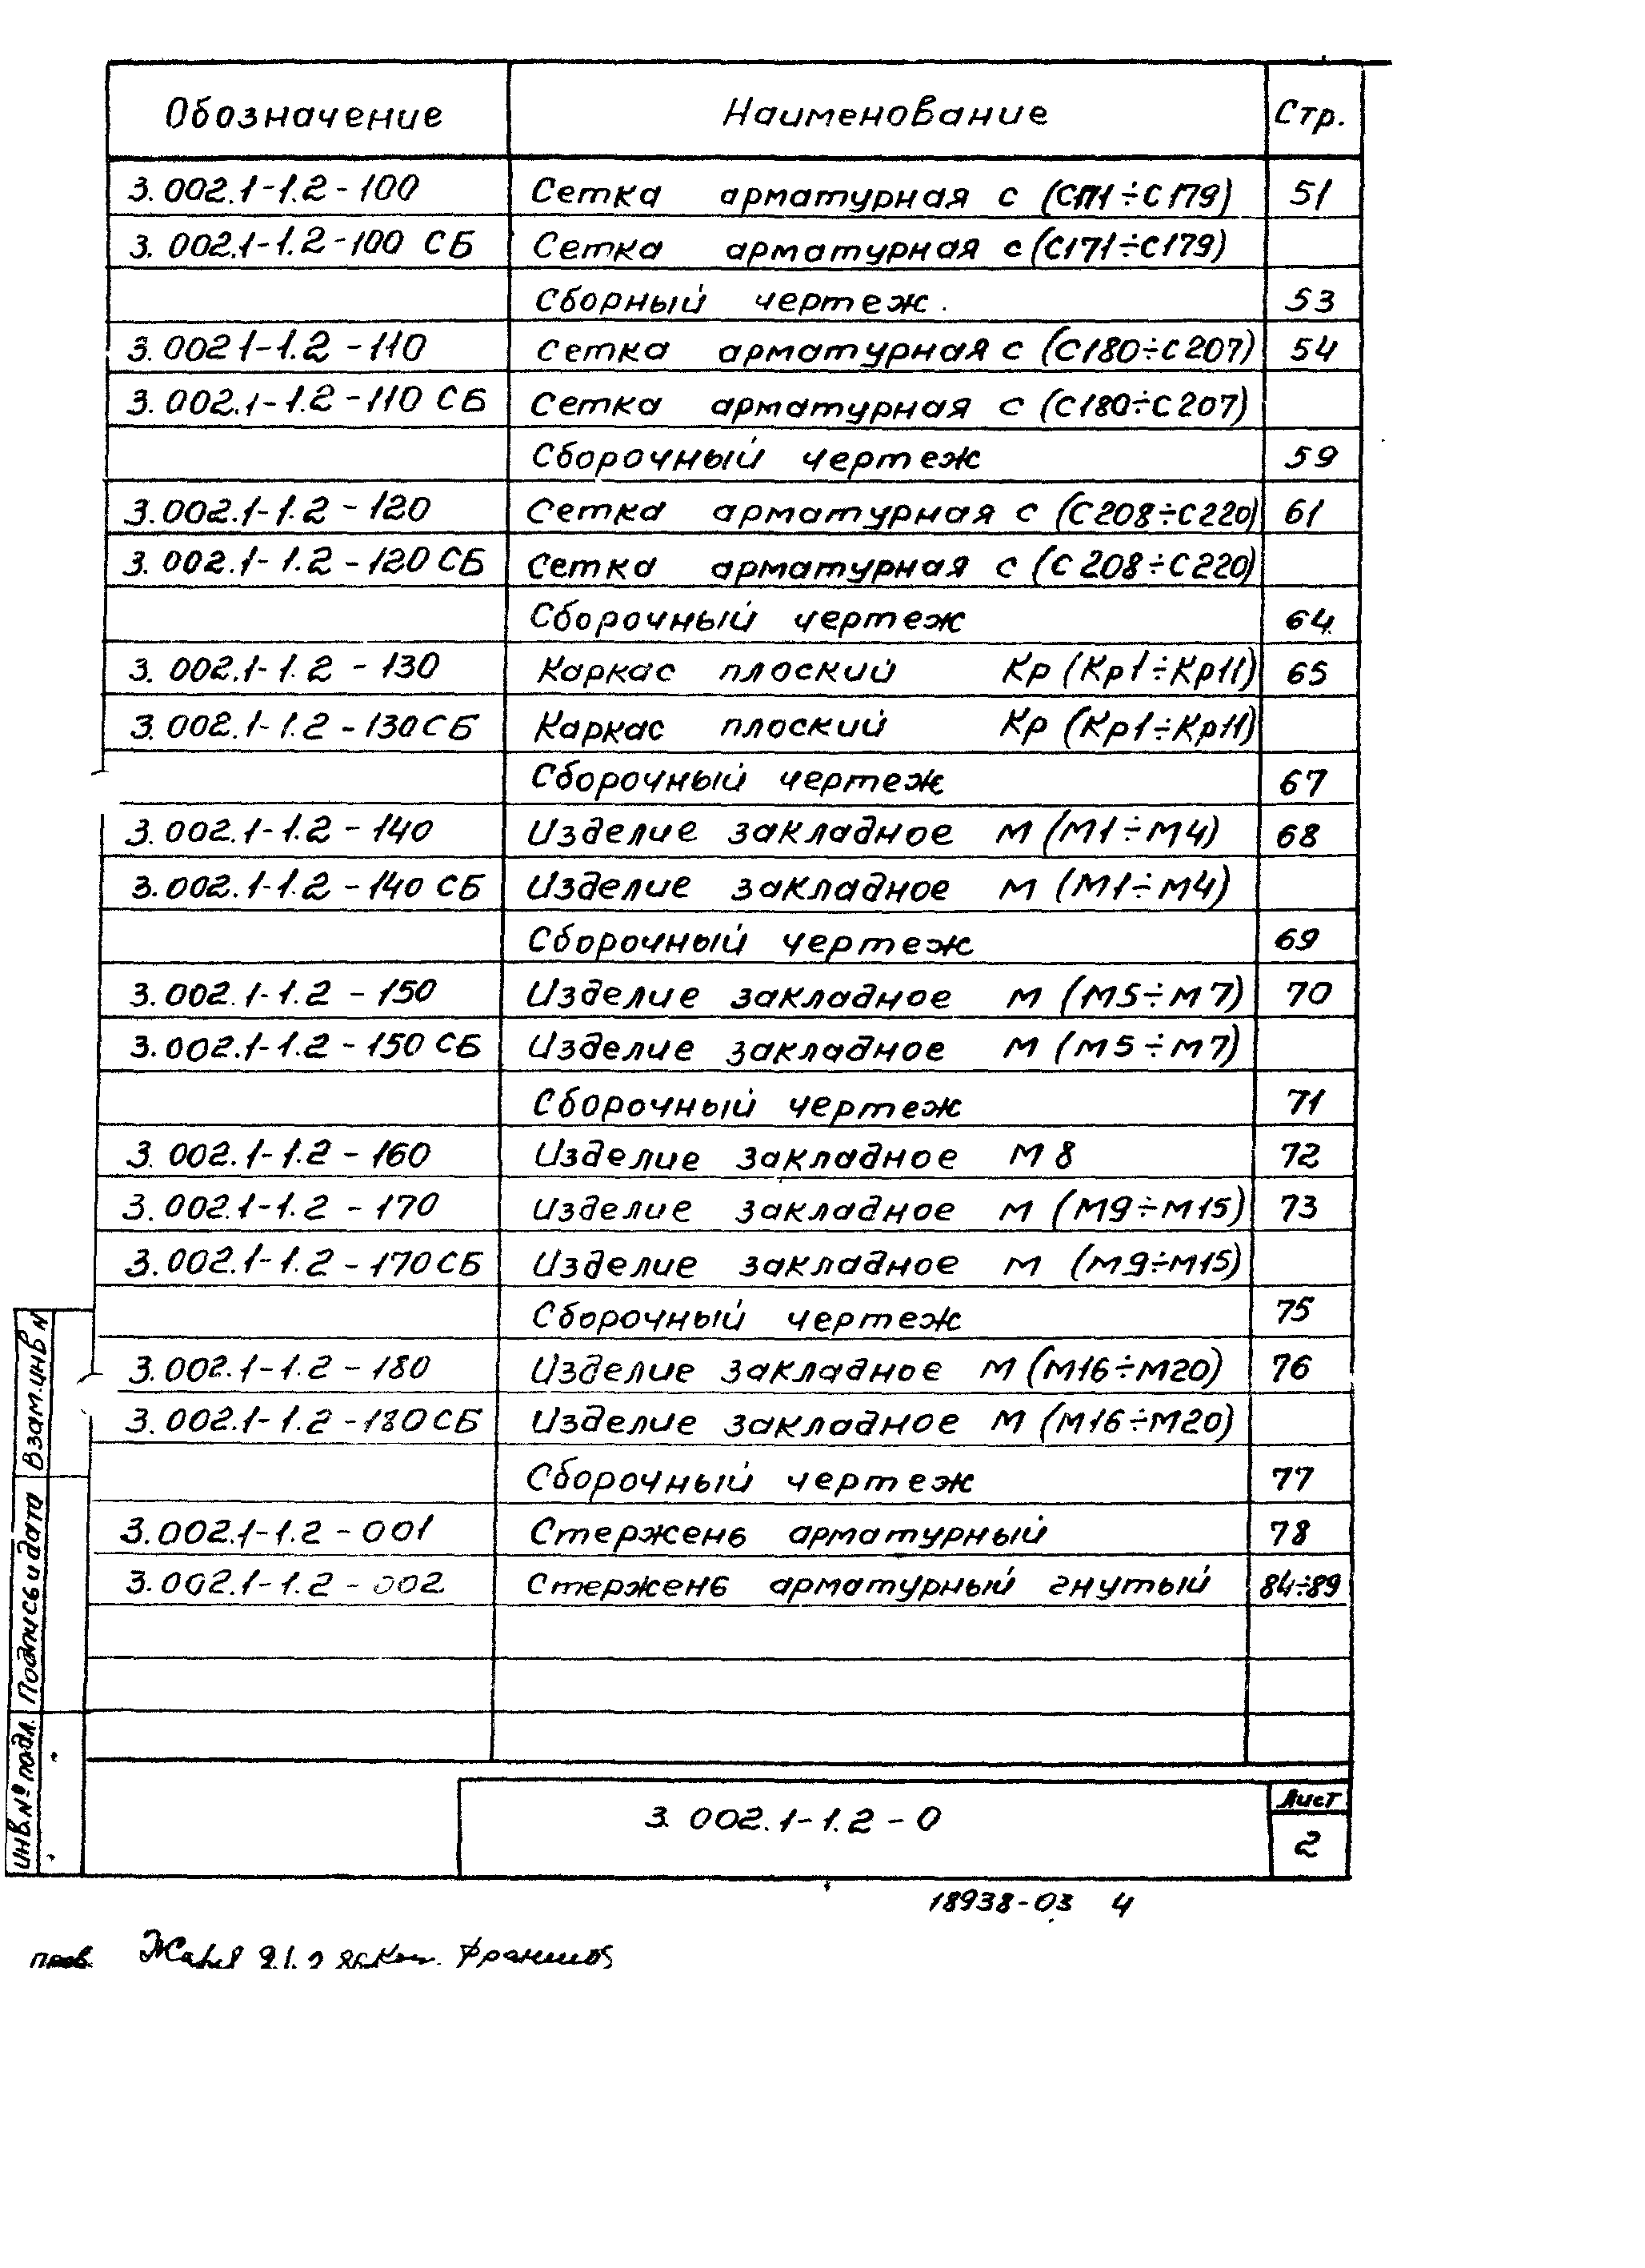 Обозначение Наименование Стр.
3.002.1-1.2-100 Сетка арматурная с (С171÷С179) 51
3.002.1-1.2-100 СБ Сетка арматурная с (С171÷С179)
Сборный чертеж. 53
3.002 1-1.2-110 Сетка арматурная с (С180÷С207) 54
3.002.1-1.2-110 СБ Сетка арматурная с (С180÷С207)
Сборочный чертеж 59
3.002.1-1.2-120 Сетка арматурная с (С208÷С220) 61
3.002.1-1.2-120 СБ Сетка арматурная с (С208÷С220)
Сборочный чертеж 64
3.002.1-1.2-130 Каркас плоский Кр (Кр1÷Кр11) 65
3.002.1-1.2-130 СБ Каркас плоский Кр (Кр1÷Кр11)
Сборочный чертеж 67
3.002.1-1.2-140 Изделие закладное М (М1÷М4) 68
3.002.1-1.2-140 СБ Изделие закладное М (М1÷М4)
Сборочный чертеж 69
3.002.1-1.2-150 Изделие закладное М (М5÷М7) 70
3.002.1-1.2-150 СБ Изделие закладное М (М5÷М7)
Сборочный чертеж 71
3.002.1-1.2-160 Изделие закладное М 8 72
3.002.1-1.2-170 Изделие закладное М (М9÷М15) 73
3.002.1-1.2-170 СБ Изделие закладное М (М9÷М15)
Сборочный чертеж 75
3.002.1-1.2-180 Изделие закладное М (М16÷М20) 76
3.002.1-1.2-180 СБ Изделие закладное М (М16÷М20)
Сборочный чертеж 77
3.002.1-1.2-001 Стержень арматурный 78
3.002.1-1.2-002 Стержень арматурный гнутый 84÷89
Взам.инв N
Подпись и дата
Инв.№ подл.
3.002.1-1.2-0
Лист
2
18938-03 4
пров.